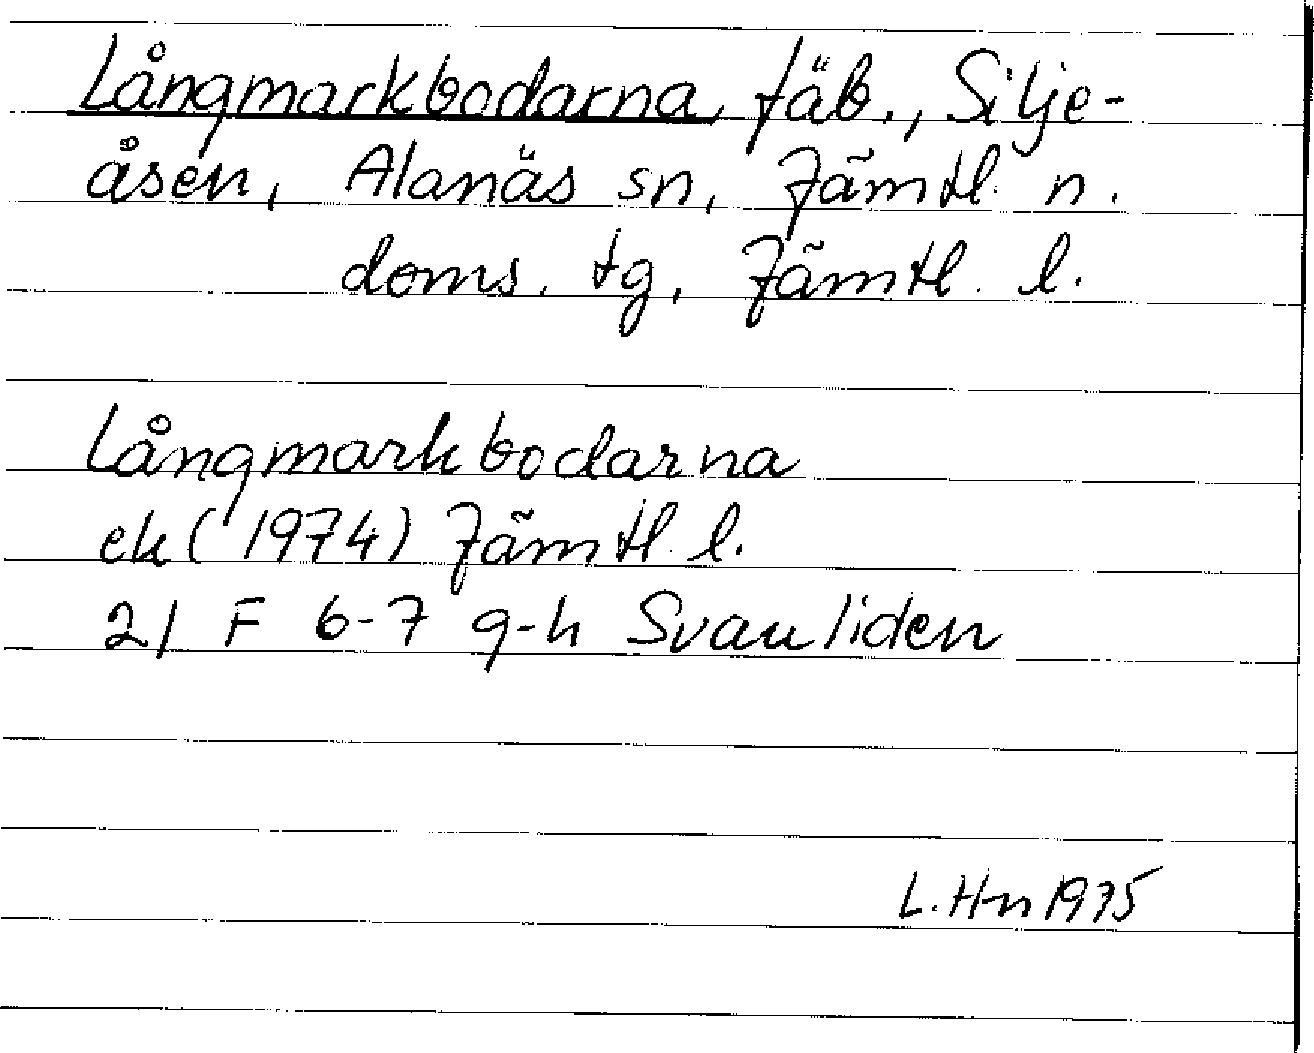 Långmarkbodarna, fäb., Silje-
åsen, Alanäs sn, Jämtl. n.
doms. tg, Jämtl. l.
Långmarkbodarna
ek (1974) Jämtl. l.
21 F 6-7 g-h Svanliden
L. H-n 1975